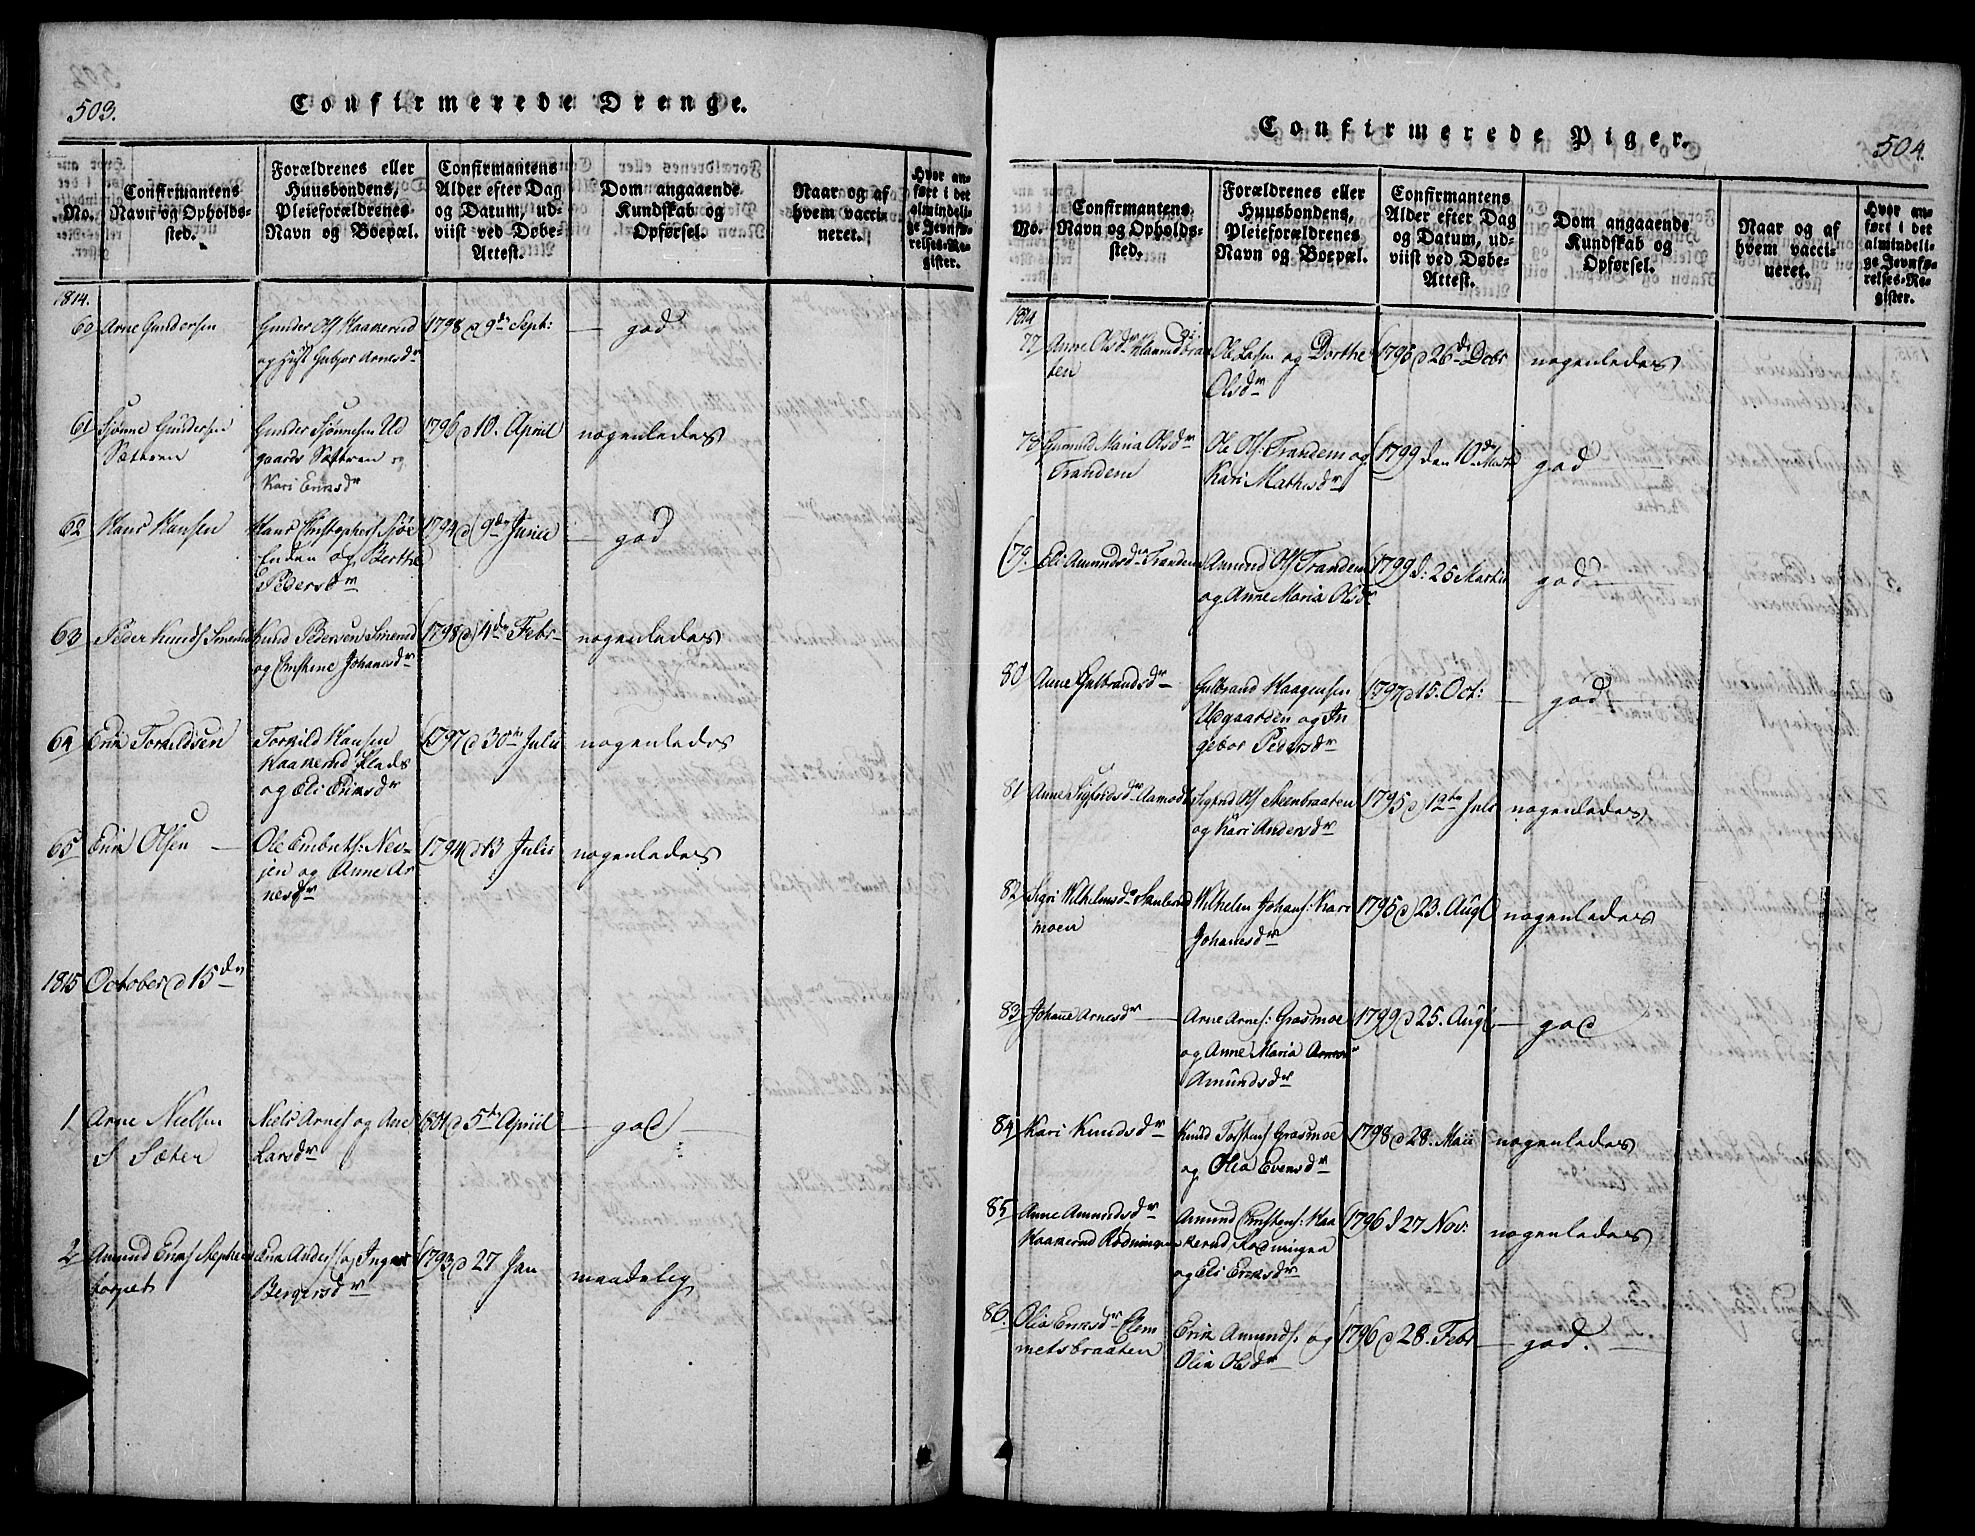 503.
Confirmerede Drenge.
No.
Confirmantens
Navn og Opholds-
sted.
Forældrenes eller
Huusbondens,
Pleieforældrenes
Navn og Boepæl.
Confirmantens
Alder efter Dag
og Datum, ud-
viist ved Døbe-
Attest.
Dom angaaende
Kundskab og
Opførsel.
Naar og af
hvem vacci-
neret.
Hvor an-
ført i det
almindeli-
ge Jevnfø-
relses-Re-
gister.
1814.
60 Arne Gundersen
Gunder Ols Haakerud
og Gubjør Arnesdr
1798 d 9de Sept:
god
61 Sjønne Gundersen
Sættren
Gunder Sjønnesen Ud
gaards Sættren og
Kari Eriksdr
1796 d 10. April
nogenledes
62 Hans Hansen
Hans Christophers Sjøe
Enden og Berthe
Pedersdr
1794 d 9de Junii
god
63 Peder Knuds Smerud
Knud Pedersen Smerud
og Christine Johanesdr
1798 d 4de Febr
nogenledes
64 Erik Torkildsen
Torkild Hansen
Haakerud Plads
og Eli Eriksdr
1797 d 30te Julii
nogenledes
65 Erik Olsen
Ole Embrets: Nev-
jen og Anne Ar
nesdr
1794 d 13 Julii
nogenledes
1815 October d 15de
1 Arne Nielsen
S Sæter
Niels Arnes og Ane
Larsdr
1801 d 5te April
god
2 Amund Eriks
torpet
Erik Anders og Inger
Bergersdr
1793 d 27 Jan
maadelig
Confirmerede Piger.
504.
No.
Confirmantens
Navn og Opholds-
sted.
Forældrenes eller
Huusbondens,
Pleieforældrenes
Navn og Boepæl.
Confirmantens
Alder efter Dag
og Datum, ud-
viist ved Døbe-
Attest.
Dom angaaende
Kundskab og
Opførsel.
Naar og af
hvem vacci-
neret.
Hvor an-
ført i det
almindeli-
ge Jevnfø-
relses-Re-
gister.
1814
77 Anne Olsdr
ten
Ole Larsen og Dorthe
Olsdr
1795 d 26de Decbr
nogenledes
78 Gunnild Maria Olsdr
Trandem
Ole Ols: Trandem og
Kari Mathisdr
1799 den 10de Martii
god
79. Eli Amundsdr Trandem
Amund Ols Trandem
og Anne Maria Olsdr
1799 d: 25 Martii
god
80 Anne Gulbrandsdr
Gulbrand Haagensen
Udgaarden og In
gebor Pedersdr
1797 d 15. Oct:
god
81 Anne Sigfridsdr Aamodt
Sigfrid Ols Steenbraaten
og Kari Andersdr
1795 d 12te Juli
nogenledes
82 Sigri Wilhelmsdr
moen
Wilhelm Johans: Kari
Johanesdr
1795 d 23. Aug
nogenledes
83 Johane Arnesdr
Arne Arnes: Grasmoe
og Anne Maria
Amundsdr
1799 d 25. Aug
god
84 Kari Knudsdr
Knud Torstens Grasmoe
og Olia Evensdr
1798 d 28. Maii
nogenledes
85 Anne Amundsdr
Haakerud Rødningen
Amund Christens: Haa
kerud Rødningen
og Eli Eriksdr
1796 d 27 Nov:
nogenledes
86. Olia Eriksdr Elem
metsbraaten
Erik Amunds: og
Olia Olsdr
1796 d 28. Febr
god.